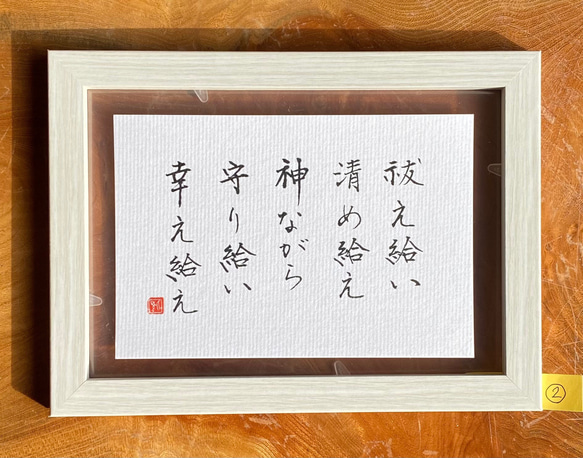 祓え給い
清め給え
神ながら
守り給い
幸え給え
②